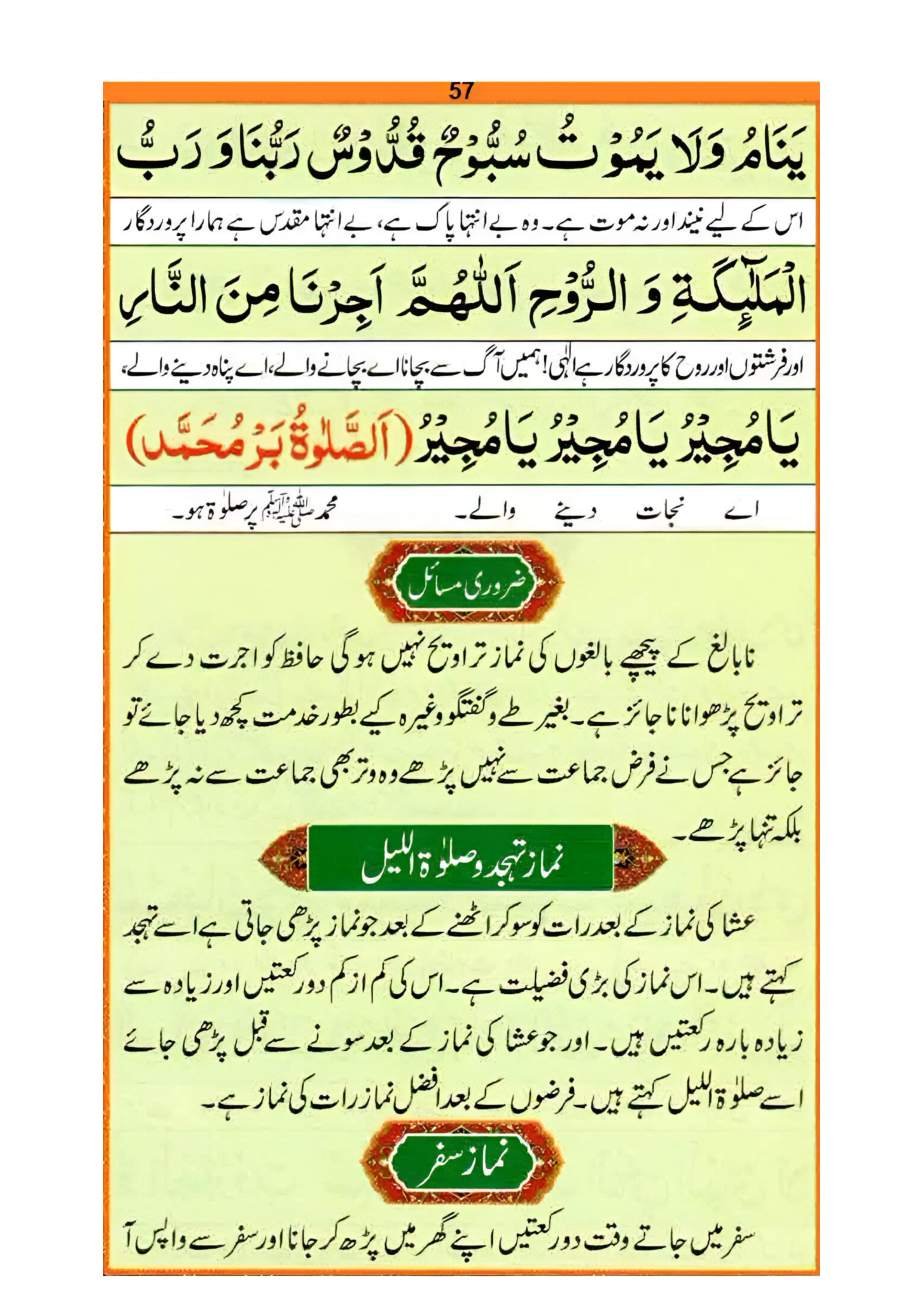 57
يَنَامُ وَلَا يَمُوْتُ سُبُّوْحٌ قُدُّوْسٌ رَبُّنَا وَ رَبُّ
اس کے لیے نیند اور نہ موت ہے۔ وہ بے انتہا پاک ہے، بے انتہا مقدس ہے ہمارا پروردگار
الْمَلٰٓئِكَةِ وَ الرُّوْحِ اَللّٰهُمَّ اَجِرْنَا مِنَ النَّارِ
اور فرشتوں اور روح کا پروردگار ہے الٰہی! ہمیں آگ سے بچانا اے بچانے والے، اے پناہ دینے والے،
يَا مُجِيْرُ يَا مُجِيْرُ يَا مُجِيْرُ (اَلصَّلٰوةُ بَرْ مُحَمَّد)
اے نجات دینے والے۔ محمد ﷺ پر صلوٰۃ ہو۔
ضروری مسائل
نابالغ کے پیچھے بالغوں کی نماز تراویح نہیں ہوگی حافظ کو اجرت دے کر
تراویح پڑھوانا ناجائز ہے۔ بغیر طے و گفتگو وغیرہ کیے بطور خدمت کچھ دیا جائے تو
جائز ہے جس نے فرض جماعت سے نہیں پڑھے وہ وتر بھی جماعت سے نہ پڑھے
بلکہ تنہا پڑھے۔
نماز تہجد و صلوٰۃ اللیل
عشا کی نماز کے بعد رات کو سو کر اٹھنے کے بعد جو نماز پڑھی جاتی ہے اسے تہجد
کہتے ہیں۔ اس نماز کی بڑی فضیلت ہے۔ اس کی کم از کم دو رکعتیں اور زیادہ سے
زیادہ بارہ رکعتیں ہیں۔ اور جو عشا کی نماز کے بعد سونے سے قبل پڑھی جائے
اسے صلوٰۃ اللیل کہتے ہیں۔ فرضوں کے بعد افضل نماز رات کی نماز ہے۔
نماز سفر
سفر میں جاتے وقت دو رکعتیں اپنے گھر میں پڑھ کر جانا اور سفر سے واپس آ